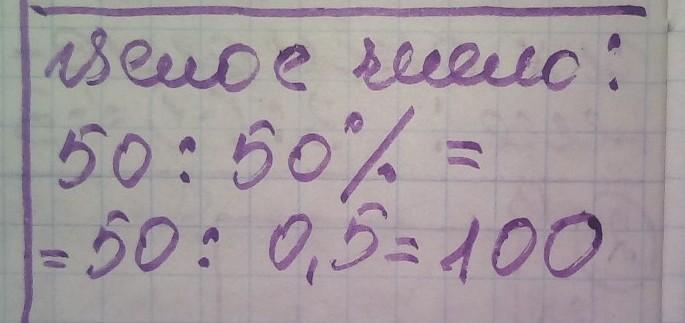 целое число:
50 : 50% =
= 50 : 0,5 = 100